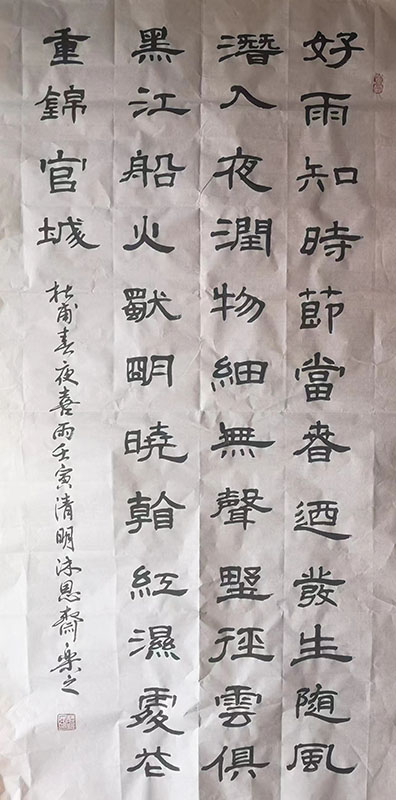 好雨知時節當春迺發生随風
潛入夜潤物細無聲墅徑雲俱
黑江船火獨眀曉看紅濕處花
重錦官城
杜甫春夜喜雨壬寅清明思齋樂之